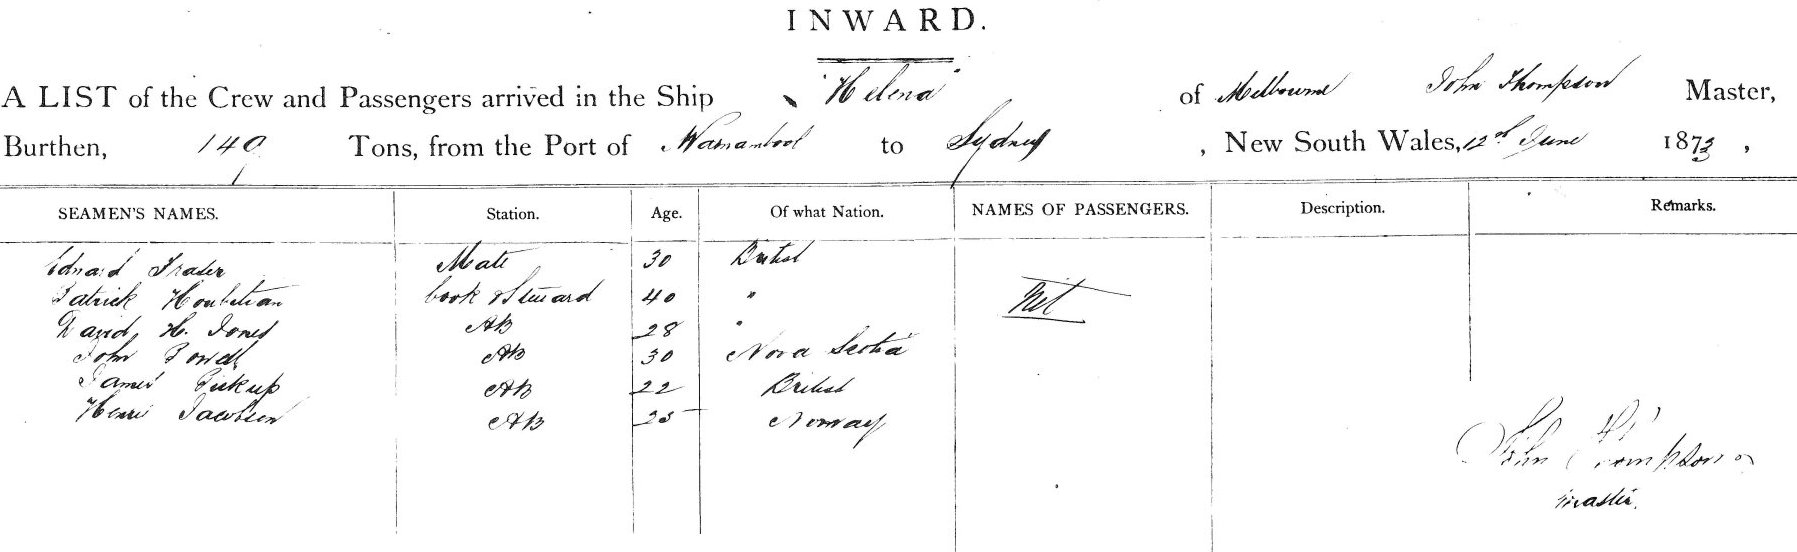 INWARD.
A LIST of the Crew and Passengers arrived in the Ship "Helena" of Melbourne John Thompson Master,
Burthen, 140 Tons, from the Port of Warnambool to Sydney, New South Wales, 12th June 1873,
SEAMEN'S NAMES. Station. Age. Of what Nation. NAMES OF PASSENGERS. Description. Remarks.
Edward Fraser Mate 30 British
Patrick Cook & Steward 40 "
Nil
David H. Jones AB 28 "
John Powell AB 30 Nova Scotia
James Pickup AB 22 British
Henri Jacobson AB 25 Norway
John Thompson
Master.